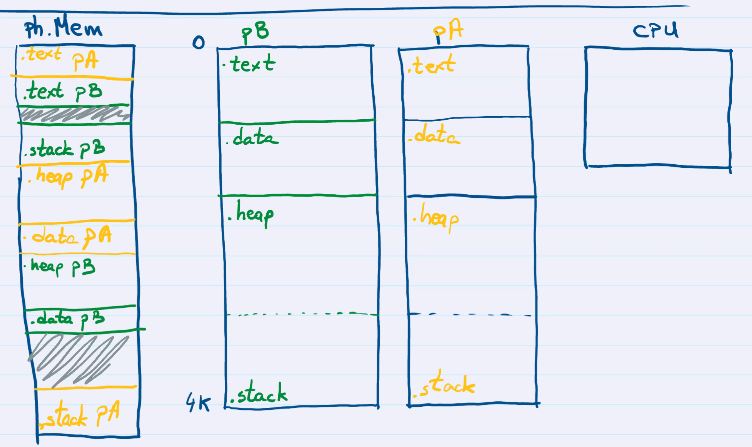 ph.Mem
.text pA
.text pB
.stack pB
.heap pA
.data pA
.heap pB
.data pB
.stack pA
0
4K
pB
.text
.data
.heap
.stack
pA
.text
.data
.heap
.stack
CPU